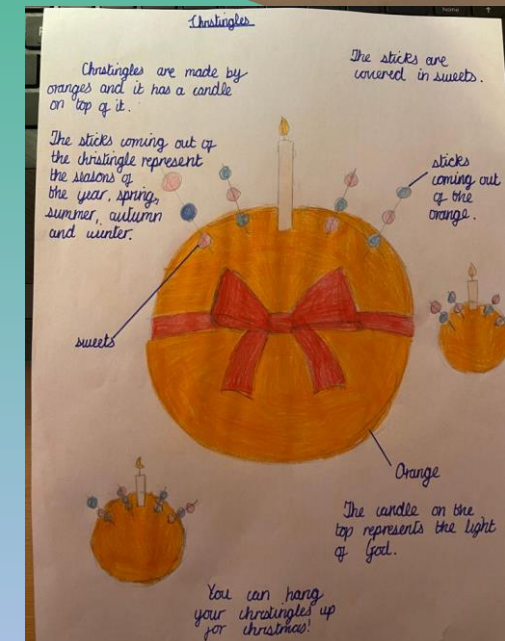 Christingles
Christingles are made by
oranges and it has a candle
on top of it.
The sticks are
covered in sweets.
The sticks coming out of
the christingle represent
the seasons of
the year, spring,
summer, autumn
and winter.
sticks
coming out
of the
orange.
sweets
Orange
The candle on the
top represents the light
of God.
You can hang
your christingles up
for christmas!